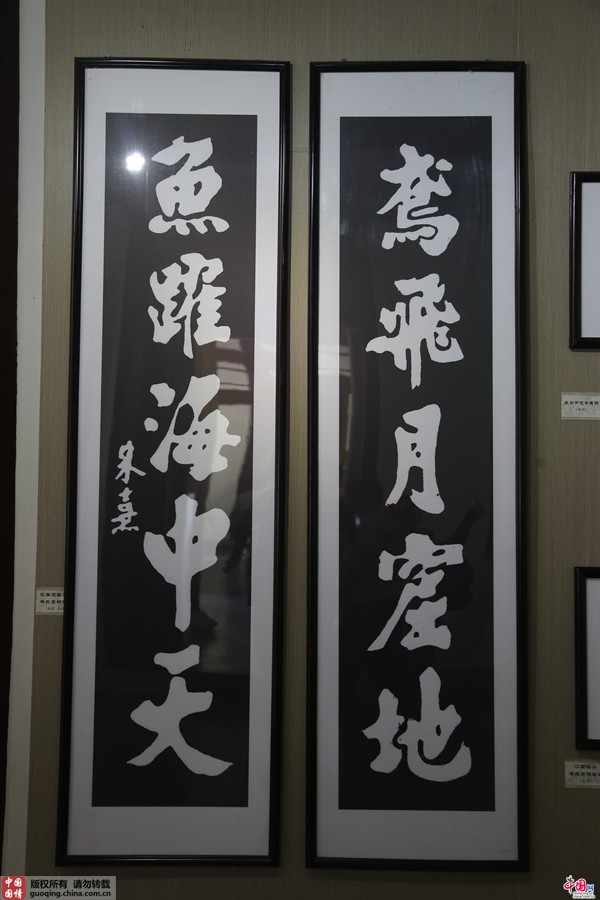 鸢飛月窟地
魚躍海中天
朱熹
中国国情
版权所有 请勿转载
guoqing.china.com.cn
中国网